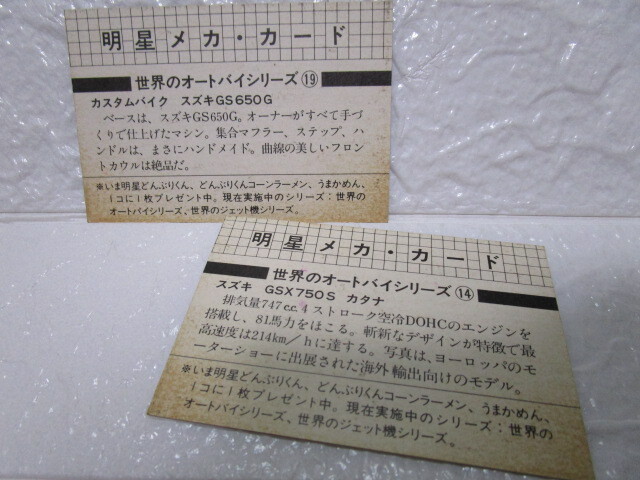 明星メカ・カード
世界のオートバイシリーズ⑲
カスタムバイク スズキGS650G
ベースは、スズキGS650G。オーナーがすべて手づ
くりで仕上げたマシン。集合マフラー、ステップ、ハ
ンドルは、まさにハンドメイド。曲線の美しいフロン
トカウルは絶品だ。
※いま明星どんぶりくん、どんぶりくんコーンラーメン、うまかめん、
1コに1枚プレゼント中。現在実施中のシリーズ：世界の
オートバイシリーズ、世界のジェット機シリーズ。
明星メカ・カード
世界のオートバイシリーズ⑭
スズキ GSX750S カタナ
排気量747c.c.4ストローク空冷DOHCのエンジンを
搭載し、81馬力をほこる。斬新なデザインが特徴で最
高速度は214km/hに達する。写真は、ヨーロッパのモ
ーターショーに出展された海外輸出向けのモデル。
※いま明星どんぶりくん、どんぶりくんコーンラーメン、うまかめん、
1コに1枚プレゼント中。現在実施中のシリーズ：世界の
オートバイシリーズ、世界のジェット機シリーズ。